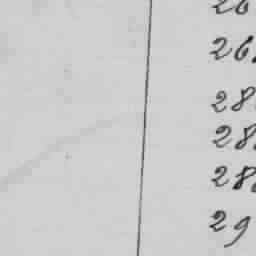 26
26
28
28
28
29